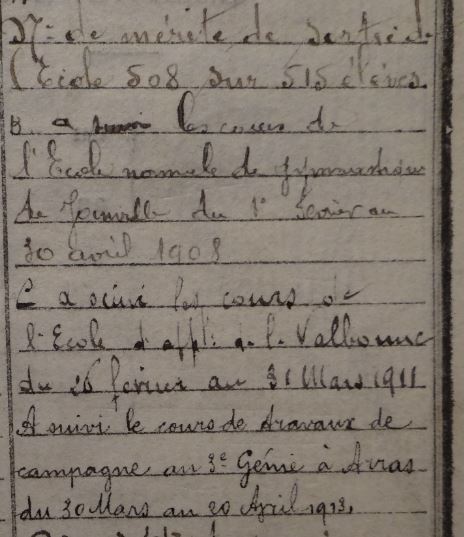 N° de mérite de sortie de
l'Ecole 508 sur 515 élèves.
B a suivi les cours de
l'Ecole normale de gymnastique
de Joinville du 1er février au
30 avril 1908
C a suivi les cours de
l'Ecole d'appl. de l. Valbonne
du 26 février au 31 Mars 1911
A suivi le cours de travaux de
campagne au 3e Génie à Arras
du 30 Mars au 20 April 1913.